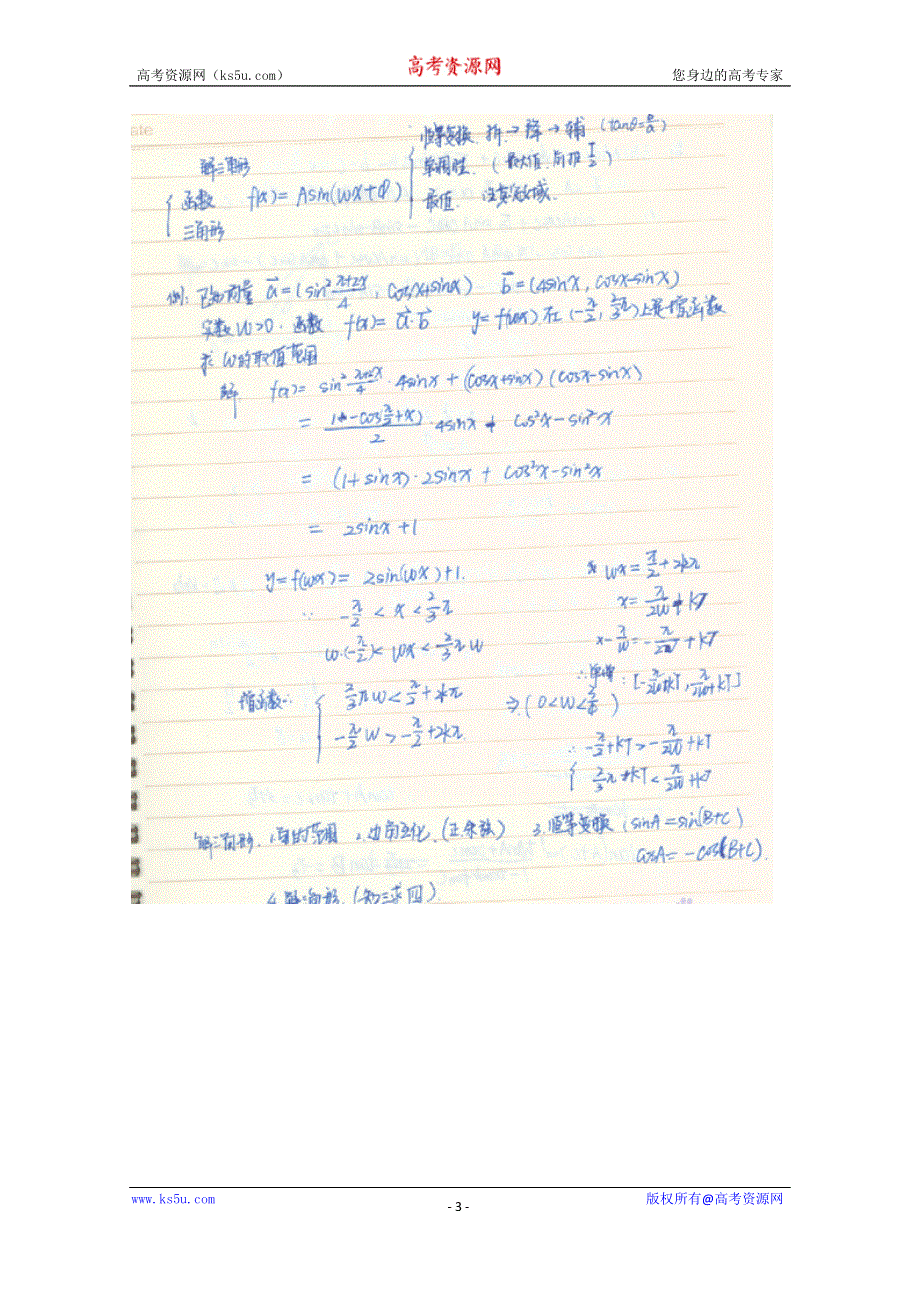 高考资源网（ks5u.com）
高考资源网
您身边的高考专家
ate
解三角形
恒等变换 拆→降→辅 (tanθ=b/a)
函数 f(x)=Asin(ωx+φ)
单调性 (最大值 前推 T/2)
三角形
最值 注意定义域
例: 已知向量 a=(sin² (π+2x)/4, cosx+sinx) b=(4sinx, cosx-sinx)
实数 ω>0. 函数 f(x)=a·b y=f(ωx) 在 (-π/2, 2/3π) 上是增函数
求 ω的取值范围
解 f(x)= sin² (π+2x)/4 · 4sinx + (cosx+sinx)(cosx-sinx)
= (1-cos(π/2+x))/2 · 4sinx + cos²x-sin²x
= (1+sinx)·2sinx + cos²x-sin²x
= 2sinx+1
y=f(ωx)= 2sin(ωx)+1.
∵ -π/2 < x < 2/3π
ω·(-π/2)< ωx < 2/3πω
增函数∴ 2/3πω < π/2+2kπ
-π/2ω > -π/2+2kπ
⇒ (0<ω<3/4)
ωx=π/2+2kπ
x=π/2ω+kT
x-π/ω=-π/2ω+kT
∴单增: [-π/2ω+kT, π/2ω+kT]
∴ -π/2+kT>-π/2ω+kT
2/3π+kT<π/2ω+kT
解三角形. 1.角的范围 2.边角互化.(正余弦) 3.恒等变换 (sinA=sin(B+C)
cosA=-cos(B+C).
4.解三角形.(知三求四)
www.ks5u.com
- 3 -
版权所有@高考资源网